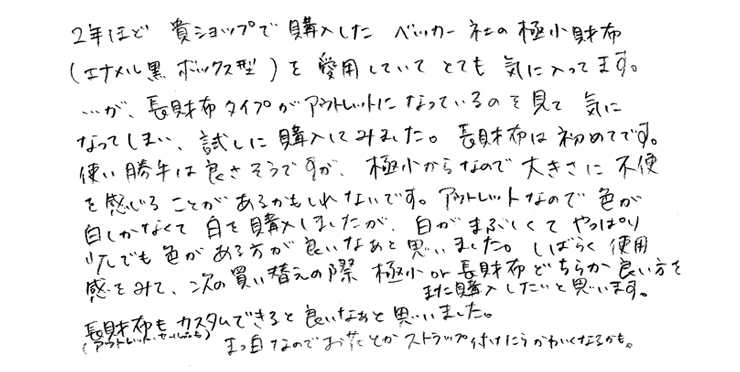 2年ほど 貴ショップで購入した ベッカー社の極小財布
(エナメル黒 ボックス型)を 愛用していて とても 気に入ってます。
…が、長財布タイプがアウトレットになっているのを見て 気に
なってしまい、試しに購入してみました。長財布は初めてです。
使い勝手は良さそうですが、極小からなので大きさに不便
を感じることがあるかもしれないです。アウトレットなので色が
白しかなくて 白を購入しましたが、白がまぶしくて やっぱり
少しでも色がある方が良いなぁと思いました。しばらく使用
感をみて、次の買い替えの際 極小or長財布どちらか良い方を
また購入したいと思います。
長財布もカスタムできると良いなぁと思いました。
(アウトレット、セールでも) まっ白なのでお花とかストラップ付けたらかわいくなるかも。